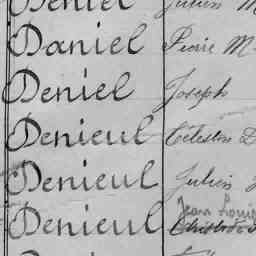 Deniel Julien M
Daniel Pierre M
Deniel Joseph
Denieul Célestin D
Denieul Julien
Denieul Jean Louis